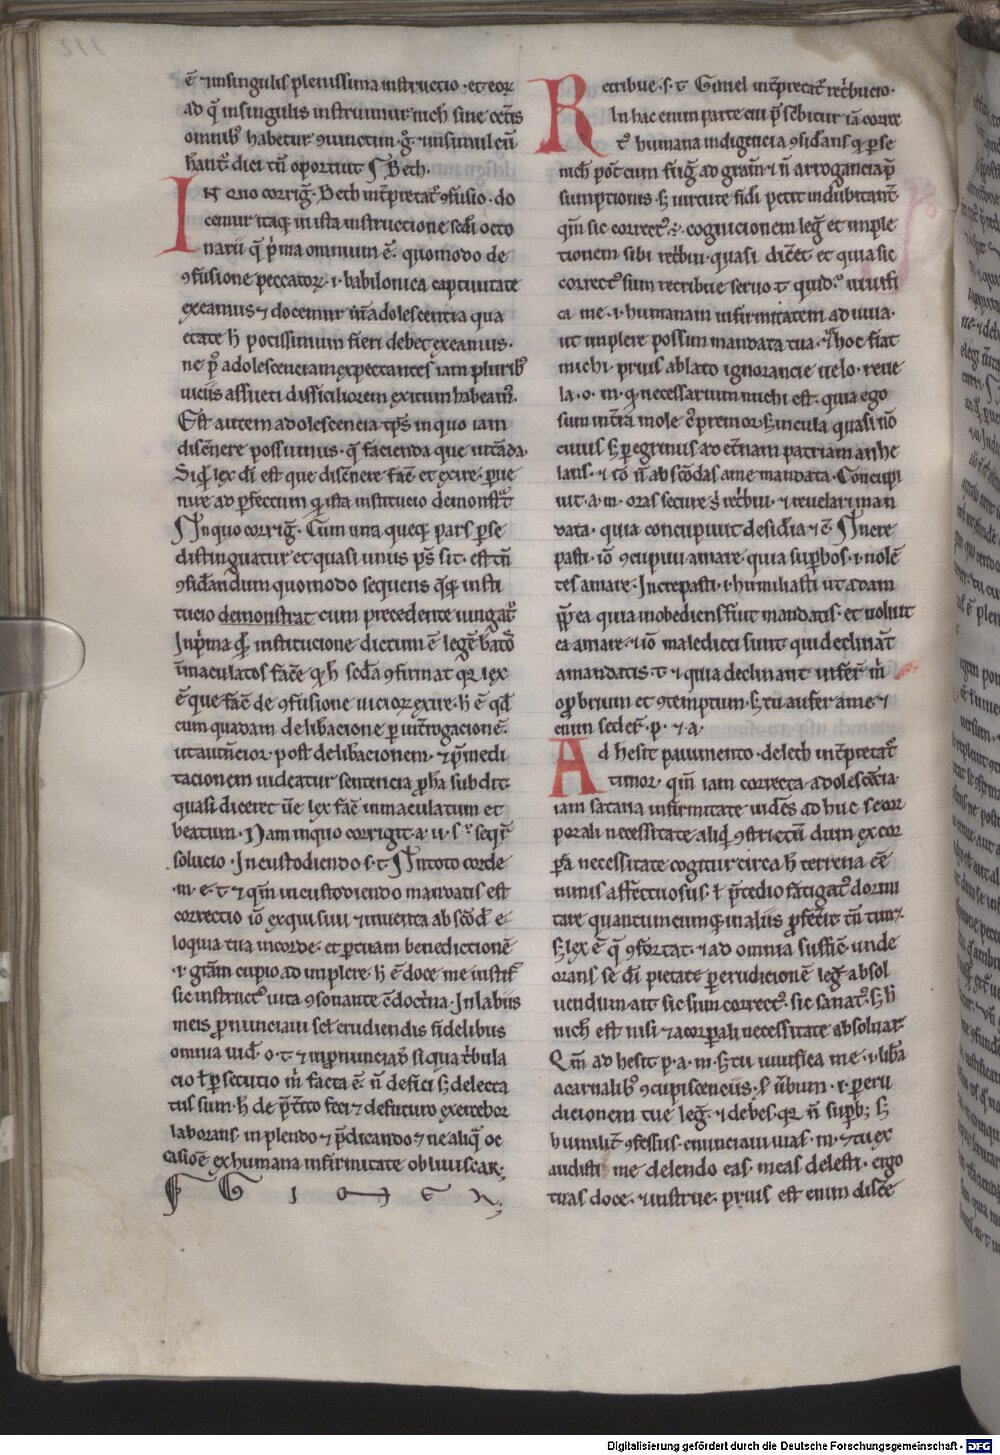 ē ⁊ insingulis plenissima instructio · et eoꝝ
ad q̄ insingulis instruimur nich̄ sine cet̄is
omnib⁹ habetur ꝯiunctum · g̊ · ⁊ insimul eū
hanc̄ dici tn̄ oportuit ¶ Beth.
IN quo corriḡ · Beth int̄pretat᷑ ꝯfusio · do
cemur itaq; in ista instructione sedi octo
narii q̄ p̄ma omnium ē · quomodo de
ꝯfusione peccatoꝝ · i · babilonica captiuitate
exeamus ⁊ docemur adolescentia qua
etate h̄ potissimum fieri debet exeamus ·
ne p⁹ adolescenciam expectantes iam plurib⁹
uiciis assueti difficiliorem exitum habeam⁹.
Est autem adolescencia tp̄s in quo iam
discn̄ere possumus · q̄ facienda que uitāda
Siq̄ lex dī est que discn̄ere facē et exire · p̱ue
nire ad p̱fectum q ista institucio demonst᷑t
¶ In quo corriḡ · Cum una queq; pars p̱ se
distinguatur et quasi unus ps̄ sit · est tn̄
ꝯsid̄andum quomodo sequens q̄q; insti
tucio demonstrat cum precedente iungat᷑
In p̄ma q̄ institucione dictum ē legē bātō
īmaculatos facē · h̄ sed̄a ꝯfirmat qꝛ lex
ē que facē de ꝯfusione uicioꝝ exire · h̄ ē qd̄
cum quadam delibacione p̱ int̄rogacionē ·
ut aut̄ncior post delibacionem · ⁊ p̄medi
tacionem uideatur sentencia ꝓh̄a subdit
quasi diceret ūe lex facē inmaculatum et
beatum · Nam inquo corrigit · a · u · s · seqit᷑
solucio · In custodiendo · s · t · ¶ In toto corde
m · e · t · ⁊ qm̄ in custodiendo mandatis est
correctio iō exquisiui ⁊ inuenta abscōd̄ e
loquia tua in corde · et p̱ tuam benedictionē
· i · grām cupio adimplere h̄ ē doce me iustif̄
sic instruct⁹ uita ꝯsonante ē doct̄na · In labiis
meis ꝓnunciaui sc̄ erudiendis fidelibus
omnia iud̄ · o · t · ⁊ in ꝓnunciādo si qua t̄bula
cio ł p̱secutio m̄ facta ē · n̄ defici s; delecta
tus sum · h̄ de p̄t̄ito feci ⁊ de futuro exercebor
laborans · inplendo ⁊ p̄dicando ⁊ ne aliq̄ oc
casiōē ex humana infirmitate obliuiscar;
G I M E L
Retribue · s · t · Gimel int̄pretat᷑ ret̄bucio ·
In hac enim parte cui p̄scbitur iā correc
t⁹ humana indigencia ꝯsid̄ans q̱ p̱ se
nich̄ pōt cum fug̱ ad grām ⁊ n̄ arroganciā p̄
sumptionis · s; uirtute fidī petit indubitant̄
qm̄ sic correct⁹ · cognicionem leg̱ et imple
tionem sibi ret̄bui · quasi dicēt et quia sic
correct⁹ sum retribue seruo t · quid · uiuifi
ca me · i · humanam infirmitatem adiuua ·
ut implere possim mandata tua · ⁊ hoc fiat
michi · prius ablato ignorancie uelo · reue
la · o · m · q̱ necessarium michi est · quia ego
sum int̄ra mole c̄premor · s; incula quasi nō
ciuis s; p̱egrinus ad et̄nam patriam anhe
lans · ⁊ iō n̄ abscōdas ame mandata · Concupi
uit · a · m · oras secure s̄ ret̄bui · ⁊ reuelari man
data · quia concupiuit desid̄ia ⁊ ē · ¶ Incre
pasti · iō ꝯcupiui amare · quia sup̱bos · i · nolē
tes amare · Increpasti · i · humiliasti ut adam
ꝓp̄ ea quia inobediens fuit mandatis · et noluit
ea amare · ⁊ iō maledicti sunt qui declināt
amandatis · t · ⁊ quia declinant infer̄ m̄
oꝓbrium et ꝯtemptum · s; tu aufer a me · ⁊
enim seder̄ · p · ⁊ · a ·
Adhesit pauimento · deleth int̄pretat᷑
timor · qm̄ iam correcta adolescēcia
iam satana infirmitate uidēs ad huc se cor
porali necessitate aliq̄ ꝯstrictū dum ex cor
p̱a necessitate cogitur circa h̄ terrena eē
nimis affectuosus · ł p̄ tedio fatigat⁹ dormi
tare quantumcumq; in aliis ꝓfecit tn̄ tim᷑ ·
s; lex ē q̄ ꝯfortat · ⁊ ad omnia sufficē · unde
orans se dī pietate p̱ erudicionē leg̱ absol
uendum ait sic sum correct⁹ · sic sanat⁹ · s; h̄
nich̄ est nisi ⁊ a corp̱ali necessitate absoluar
Qm̄ adhesit p · a · m · s; tu uiuifica me · i · lib̄a
a carnalib⁹ ꝯcupiscenciis · s̄ ūbum · i · p̱ eru
dicionem tue leg̱ · ⁊ debes · qꝛ n̄ sup̱b; s;
humilit̄ ꝯfessus · enunciaui uias · m · ⁊ tu ex
audisti me delendo eas · meas delesti · ergo
tuas doce · ⁊ instrue · prius est enim discē
Digitalisierung gefördert durch die Deutsche Forschungsgemeinschaft - DFG